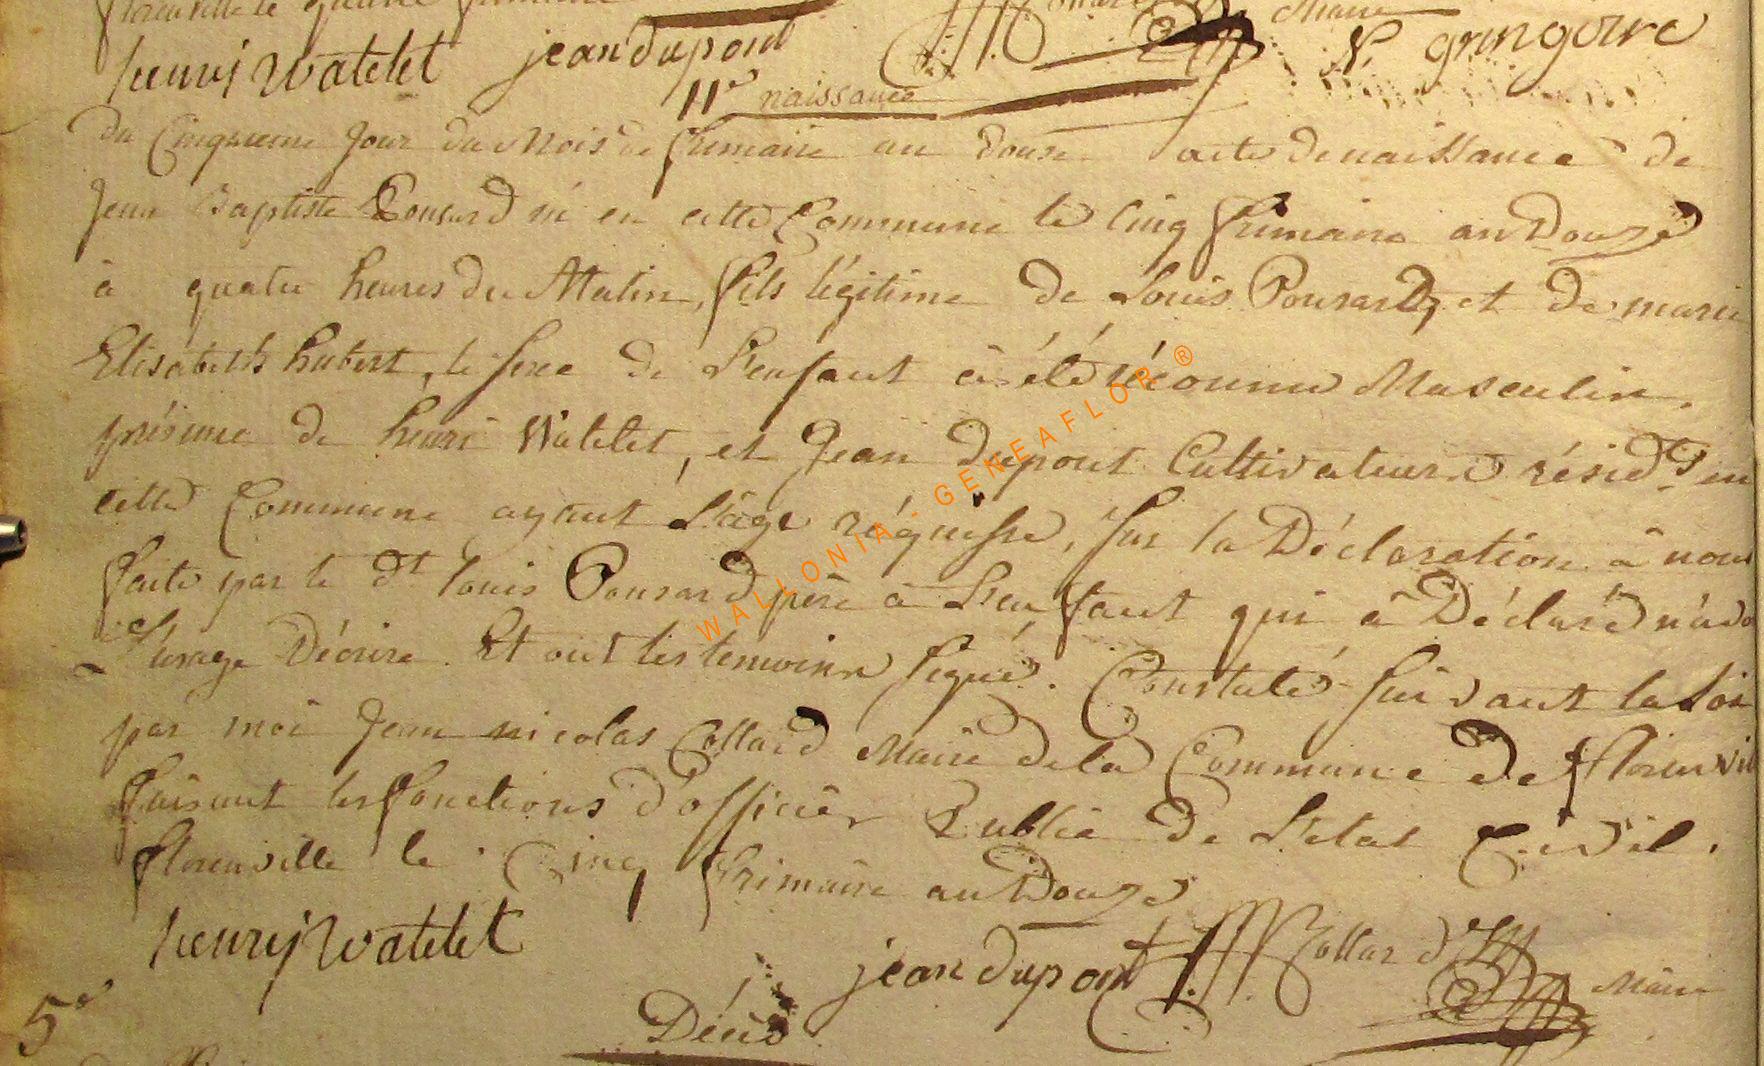 florenville le quatre frimaire
henrij Watelet jean dupont Maire N. gringoire
11e naissance
Du Cinquieme Jour du Mois de frimaire an douze acte de naissance de
Jean Baptiste Ponsard né en cette Commune le Cinq frimaire an Douze
à quatre heures du Matin, fils légitime de Louis Ponsard, et de marie
Elisabeth hubert, le sexe de L'enfant à été réconnu Masculin,
présence de henri Watelet, et Jean Dupont Cultivateurs résidts en
cette Commune ayant L'âge réquisse, Sur la Déclaration à nous
faite par le dt Louis Ponsard père à L'enfant qui à Déclaré n'avo
L'usage Décrire. Et ont les temoins Signé. Constaté Suivant la Loi
par moi Jean nicolas Collard Maire de la Commune de florenvil
faisant les fonctions d'officier Public de L'etat Civil.
florenville le Cinq frimaire an Douze
henrij Watelet jean dupont Collard Maire
5e Décès
WALLONIA - GENEAFLOR ®